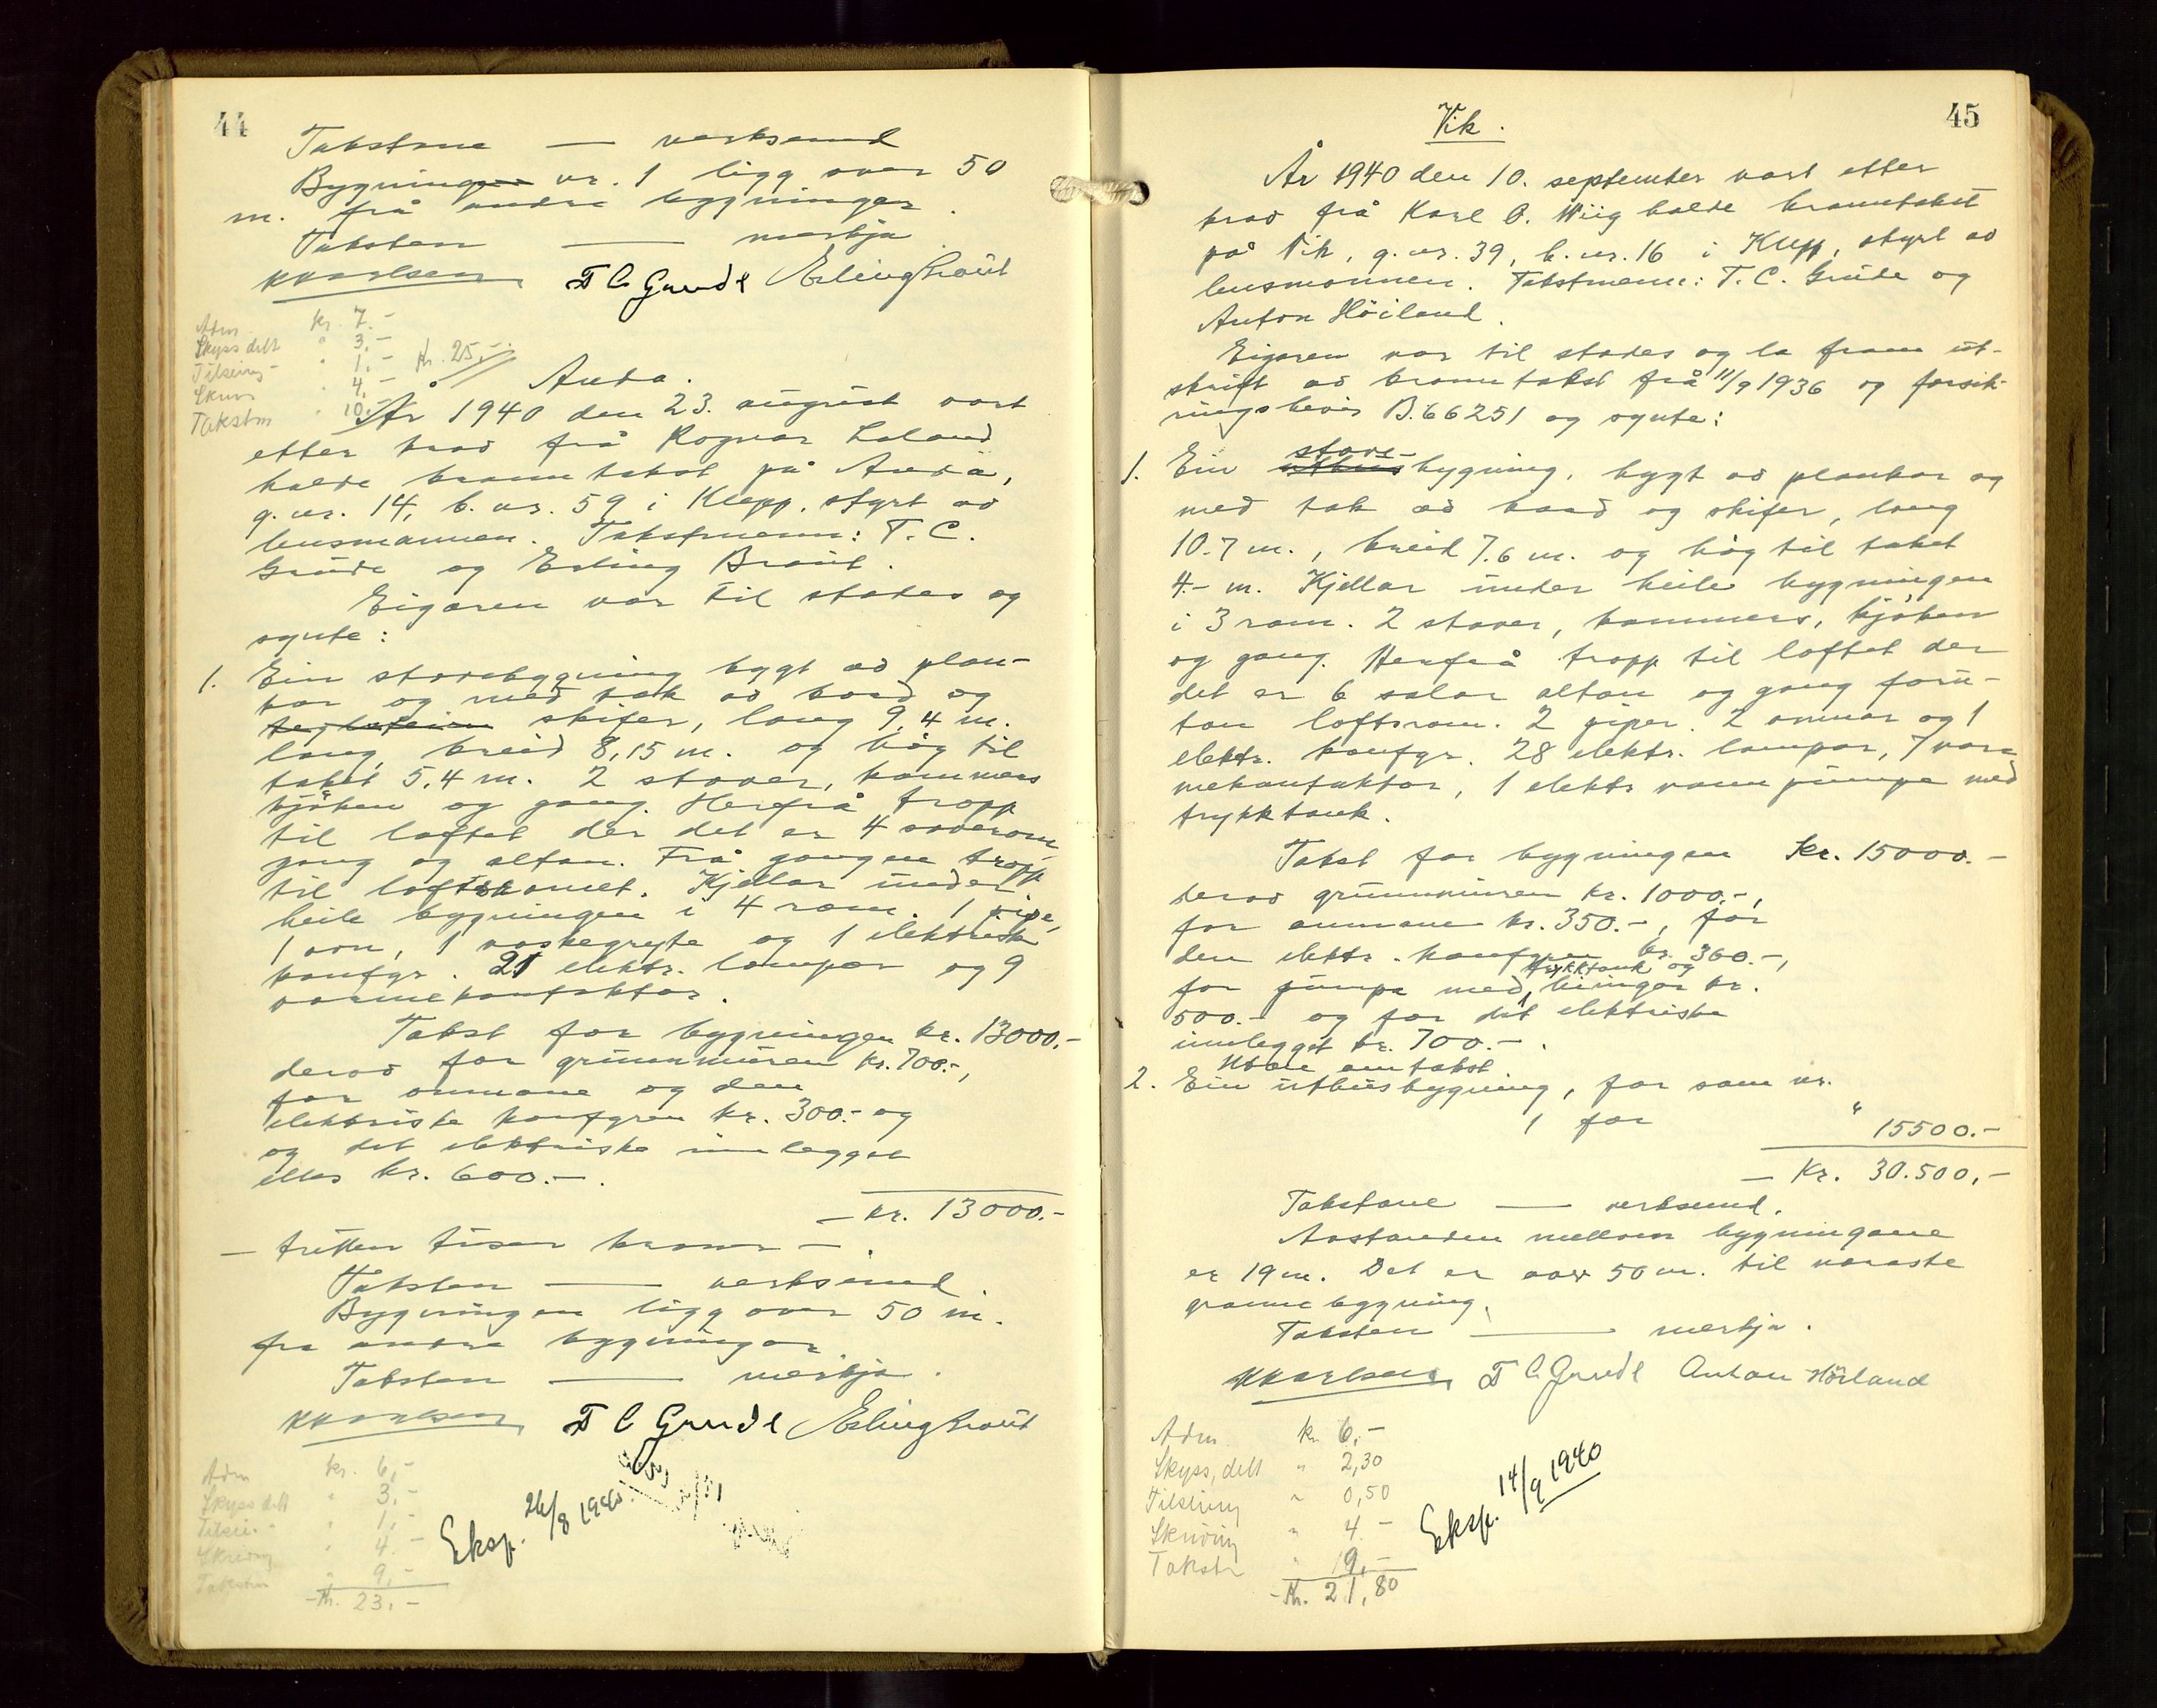 44
Takstane — verksemd
Bygningen nr. 1 ligg over 50
m. frå andre bygningar.
Taksten — merkja.
KKarlsen T C Grude Erling Braut
Adm. kr. 7.-
Skyss delt " 3,-
Tilseing " 1,- Kr. 25,-
Skriv " 4,-
Takstm " 10.-
Anda.
År 1940 den 23. august vart
etter krav frå Rognar Laland
halde branntakst på Anda,
g.nr. 14, b.nr. 59 i Klepp, styrt av
lensmannen. Takstmenn: T. C.
Grude og Erling Braut.
Eigaren var til stades og
synte:
1. Ein stovebygning bygt av plan-
kar og med tak av bord og
teglstein skifer, lang 9,4 m.
lang, breid 8,15 m. og høg til
taket 5.4 m. 2 stover, kammers
kjøken og gang. Herfrå tropp
til loftet der det er 4 soverom
gang og altan. Frå gangen tropp
til loftsromet. Kjellar under
heile bygningen i 4 rom. 1 pipe,
1 omn, 1 vaskegryte og 1 elektrisk
komfyr. 21 elektr. lampor og 9
varmekontaktar.
Takst for bygningen kr. 13000.-
derav for grunnmuren kr. 700.-,
for omnane og den
elektriske komfyren kr. 300.- og
og det elektriske innlegget
elles kr. 600.-.
— kr. 13000.-
— tretten tusen kroner —.
Taksten — verksemd.
Bygningen ligg over 50 m.
fra andre bygningar
Taksten — merkja.
KKarlsen T C Grude Erling Braut
Adm kr. 6,-
Skyss delt " 3,-
Tilsei.- " 1,-
Skriving " 4.-
Takstm " 9,-
-Kr. 23.-
Eksp. 26/8 1940.
45
Vik.
År 1940 den 10. september vart etter
krav frå Karl O. Wiig halde branntakst
på Vik, g.nr. 39, b.nr. 16 i Klepp, styrt av
lensmannen. Takstmenn: T. C. Grude og
Anton Höiland.
Eigaren var til stades og la fram ut-
skrift av branntakst frå 11/9 1936 og forsik-
ringsbevis B.66251 og synte:
1. Ein uthus stove-bygning, bygt av plankar og
med tak av bord og skifer, lang
10.7 m., breid 7.6 m. og høg til taket
4.- m. Kjellar under heile bygningen
i 3 rom. 2 stover, kammers, kjøken
og gang. Herfrå tropp til loftet der
det er 6 salar altan og gang foru-
tan loftsrom. 2 piper 2 omnar og 1
elektr. komfyr. 28 elektr. lampor, 7 var-
mekontaktar, 1 elektr vannpumpe med
trykktank.
Takst for bygningen Kr. 15000.-
derav grunnmuren kr. 1000.-,
for omnane kr. 350.-, for
den elektr. komfyren kr. 360.-,
for pumpe med trykktank og leiingar kr.
500.- og for det elektriske
innlegget kr. 700.-.
Utan omtakst
2. Ein uthusbygning, før som nr.
1 for " 15500.-
— Kr. 30.500,-
Takstane — verksemd.
Avstanden mellom bygningane
er 19 m. Det er over 50 m. til næraste
grannebygning.
Taksten — merkja.
KKarlsen T C Grude Anton Höiland
Adm kr. 6,-
Skyss, delt " 2,30
Tilseing " 0,50
Skriving " 4.-
Takstm " 9,-
-Kr. 21,80
Eksp. 14/9 1940